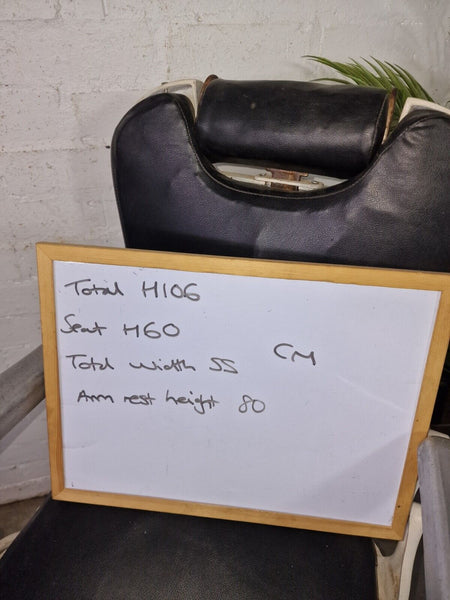 Total H106
Seat H60
Total width 55
CM
Arm rest height 80